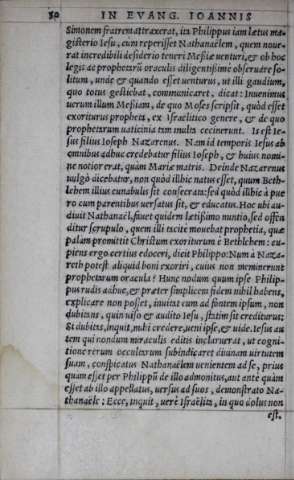 80 IN EVANG. IOANNIS
Simonem fratrem attraxerat, ita Philippus iam lætus ma-
gisterio Iesu, cum reperisset Nathanaëlem, quem noue-
rat incredibili desiderio teneri Meßiæ uenturi, & ob hoc
legis ac prophetarũ oracula diligentißime obseruare so-
litum, unde & quando esset uenturus, ut illi gaudium,
quo totus gestiebat, communicaret, dicat: Inuenimus
uerum illum Meßiam, de quo Moses scripsit, quòd esset
exoriturus propheta, ex Israëlitico genere, & de quo
prophetarum uaticinia tam multa cecinerunt. Is est Ie-
sus filius Ioseph Nazarenus. Nam id temporis Iesus ab
omnibus adhuc credebatur filius Ioseph, & huius nomi-
ne notior erat, quàm Mariæ matris. Deinde Nazarenus
uulgò dicebatur, non quòd illhic natus esset, quum Beth-
lehem illius cunabulis sit consecrata: sed quòd illhic à pue
ro cum parentibus uersatus sit, & educatus. Hoc ubi au-
diuit Nathanaël, fauet quidem lætißimo nuntio, sed offen
ditur scrupulo, quem illi tacite mouebat prophetia, quæ
palam promittit Christum exoriturum è Bethlehem: cu-
piens ergo certius edoceri, dicit Philippo: Num à Naza-
reth potest aliquid boni exoriri, cuius non meminerunt
prophetarum oracula? Hunc nodum quum ipse Philip-
pus rudis adhuc, & præter simplicem fidem nihil habens,
explicare non posset, inuitat eum ad fontem ipsum, non
dubitans, quin uiso & audito Iesu, statim sit crediturus:
Si dubitas, inquit, mihi credere, ueni ipse, & uide. Iesus au
tem qui nondum miraculis editis inclaruerat, ut cogni-
tione rerum occultarum subindicaret diuinam uirtutem
suam, conspicatus Nathanaëlem uenientem ad se, prius
quàm esset per Philippũ de illo admonitus, aut ante quàm
esset ab illo appellatus, uersus ad suos, demonstrato Na-
thanaële: Ecce, inquit, uerè Israëlita, in quo dolus non
est.